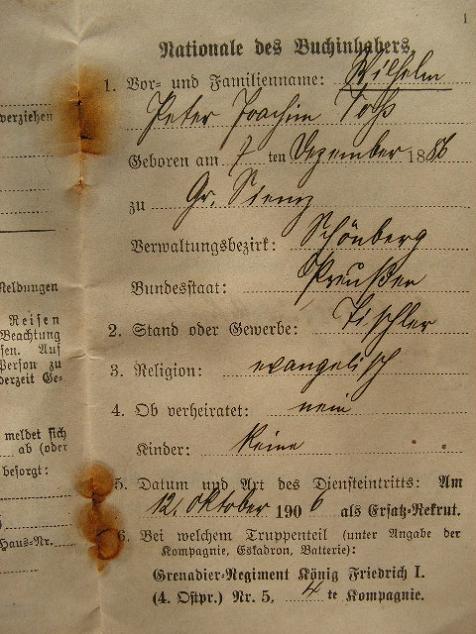 1
Nationale des Buchinhabers.
1. Vor- und Familienname: Wilhelm
Peter Joachim Voß
Geboren am 7 ten Dezember 1886
zu Gr. Siemz
Verwaltungsbezirk: Schönberg
Bundesstaat: Preußen
2. Stand oder Gewerbe: Tischler
3. Religion: evangelisch
4. Ob verheiratet: nein
Kinder: keine
5. Datum und Art des Diensteintritts: Am
12. Oktober 1906 als Ersatz-Rekrut.
6. Bei welchem Truppenteil (unter Angabe der
Kompagnie, Eskadron, Batterie):
Grenadier-Regiment König Friedrich I.
(4. Ostpr.) Nr. 5, 4 te Kompagnie.
verziehen
Meldungen
Reisen
Beachtung
sen. Auf
Person zu
derzeit Ge-
meldet sich
ab (oder
besorgt:
Haus-Nr.